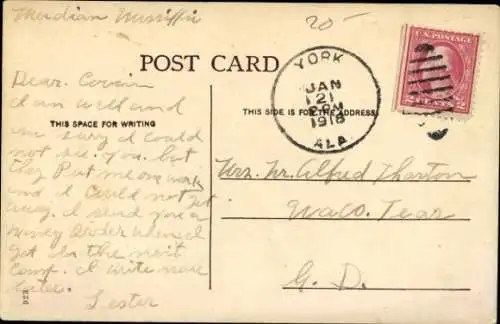 Meridian Mississippi
20-
POST CARD
YORK
JAN
21
2 PM
1918
ALA.
U.S. POSTAGE
THIS SPACE FOR WRITING
THIS SIDE IS FOR THE ADDRESS
Dear. Cousin
I am well and
am sorry I could
not see. you. but
they Put me on work
and I could not get
away. I send you a
money order when I
get to the next
Camp. I write more
later.
Lester
Mrs. Mr. Alfred Tharton
Waco. Texas
G. D.